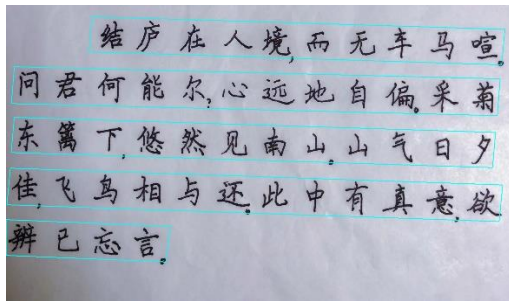 结庐在人境,而无车马喧。
问君何能尔,心远地自偏。采菊
东篱下,悠然见南山。山气日夕
佳,飞鸟相与还。此中有真意,欲
辨已忘言。